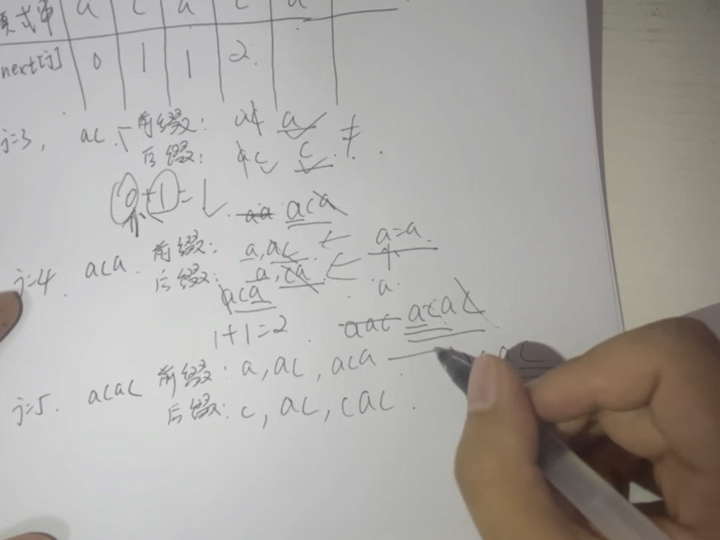 模式串 a c a c a
next[j] 0 1 1 2
j=3, ac. 前缀: a
后缀: c ≠
0+1=1 aca
j=4. aca. 前缀: a, ac ← a=a
后缀: a, ca ←
aca a
1+1=2 aac acac
j=5. acac 前缀: a, ac, aca — ac
后缀: c, ac, cac.